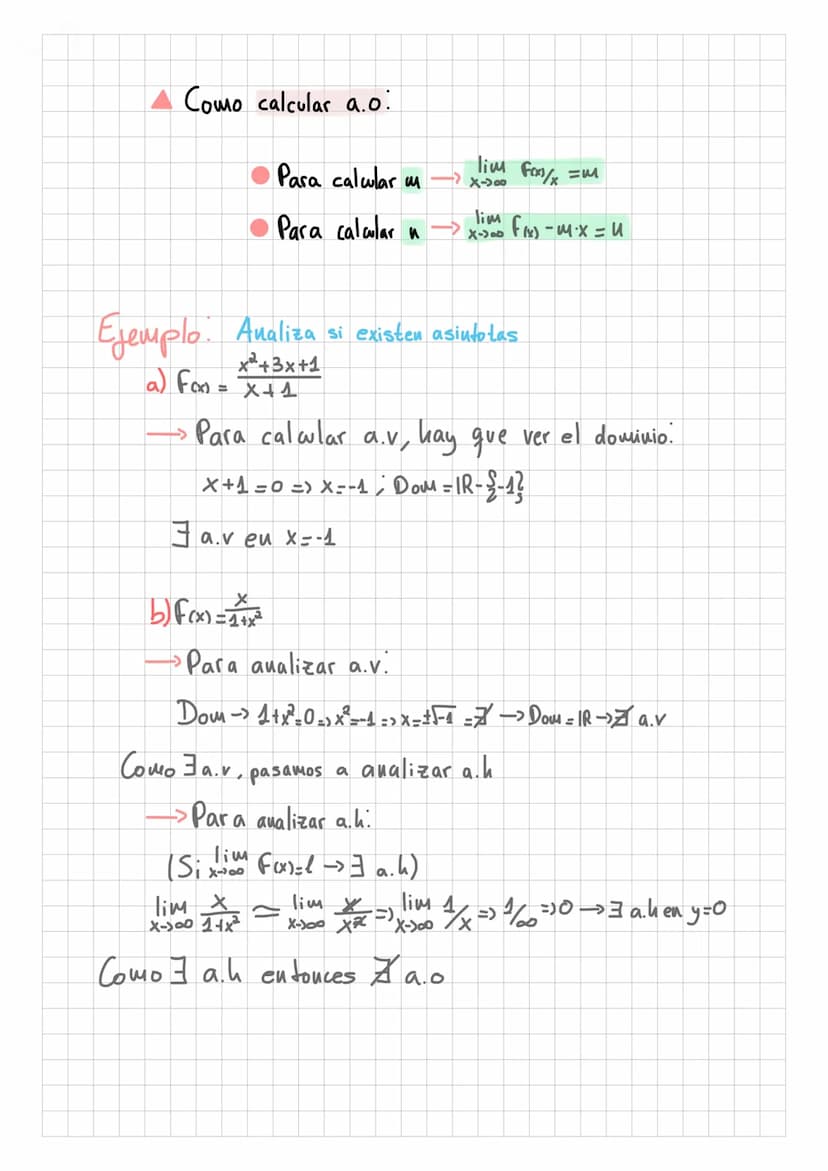 ▲ Como calcular a.o:
● Para calcular m → lim x→∞ F(x)/x = m
● Para calcular n → lim x→∞ f(x) - m·x = n
Ejemplo: Analiza si existen asintotas
a) F(x) = x²+3x+1 / x+1
→ Para calcular a.v, hay que ver el dominio:
x+1=0 => x=-1 ; Dom = IR-{-1}
∃ a.v en x=-1
b) F(x) = x / 1+x²
→ Para analizar a.v:
Dom → 1+x²=0 => x²=-1 => x=±√-1 = ∄ → Dom = IR → ∄ a.v
Como ∃ a.v, pasamos a analizar a.h
→ Para analizar a.h:
(Si lim x→∞ F(x)=l → ∃ a.h)
lim x→∞ x / 1+x² ≃ lim x→∞ x / x² => lim x→∞ 1/x => 1/∞ => 0 → ∃ a.h en y=0
Como ∃ a.h entonces ∄ a.o